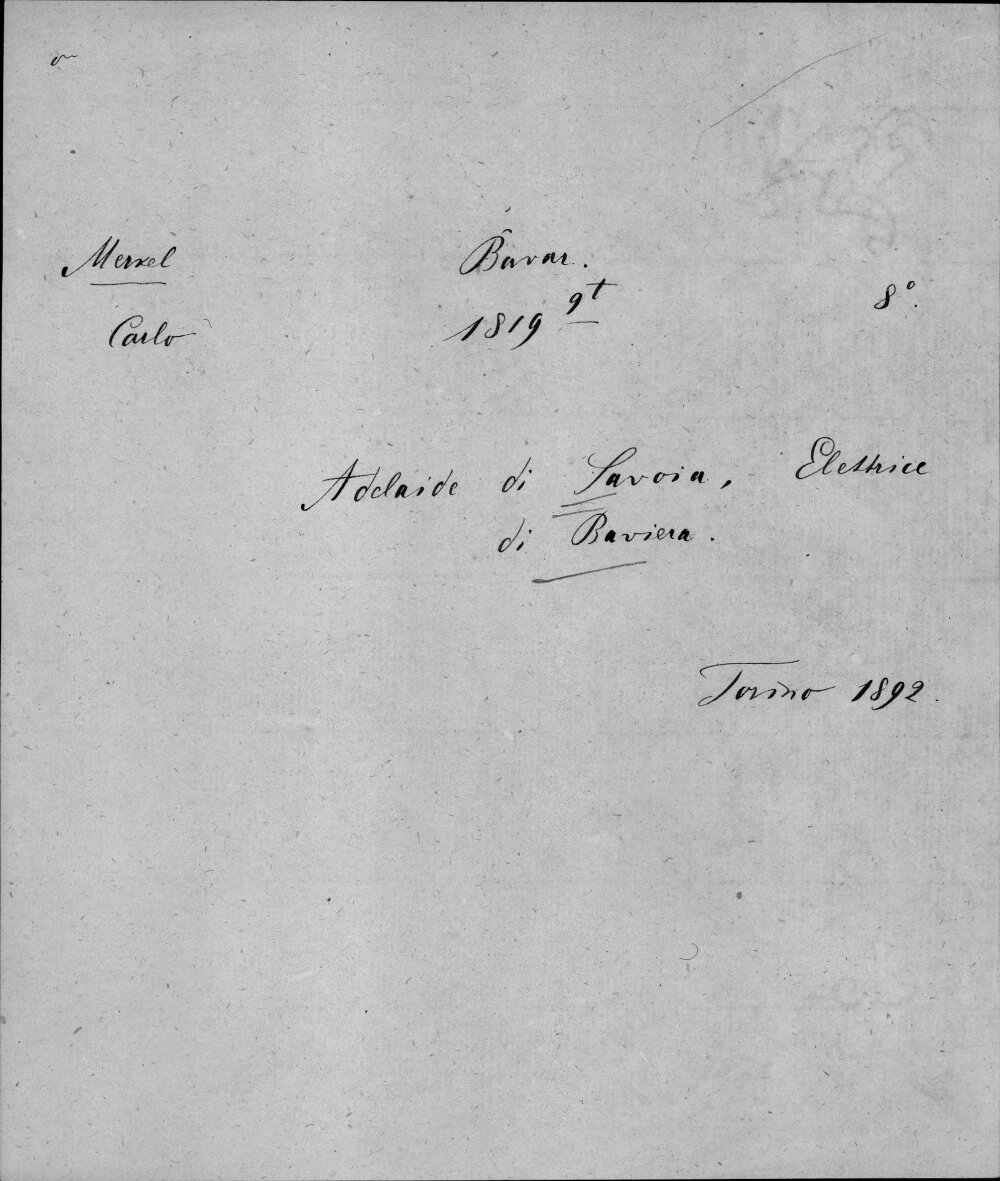 Merkel
Bavar.
8°.
Carlo
1819 9t
Adelaide di Savoia, Elettrice
di Baviera.
Torino 1892.